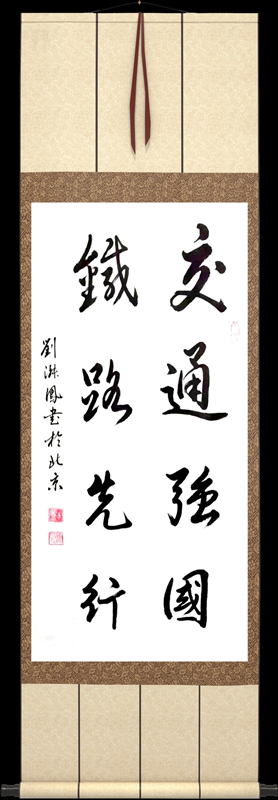 交通強國
鐵路先行
劉淑鳳書於北京